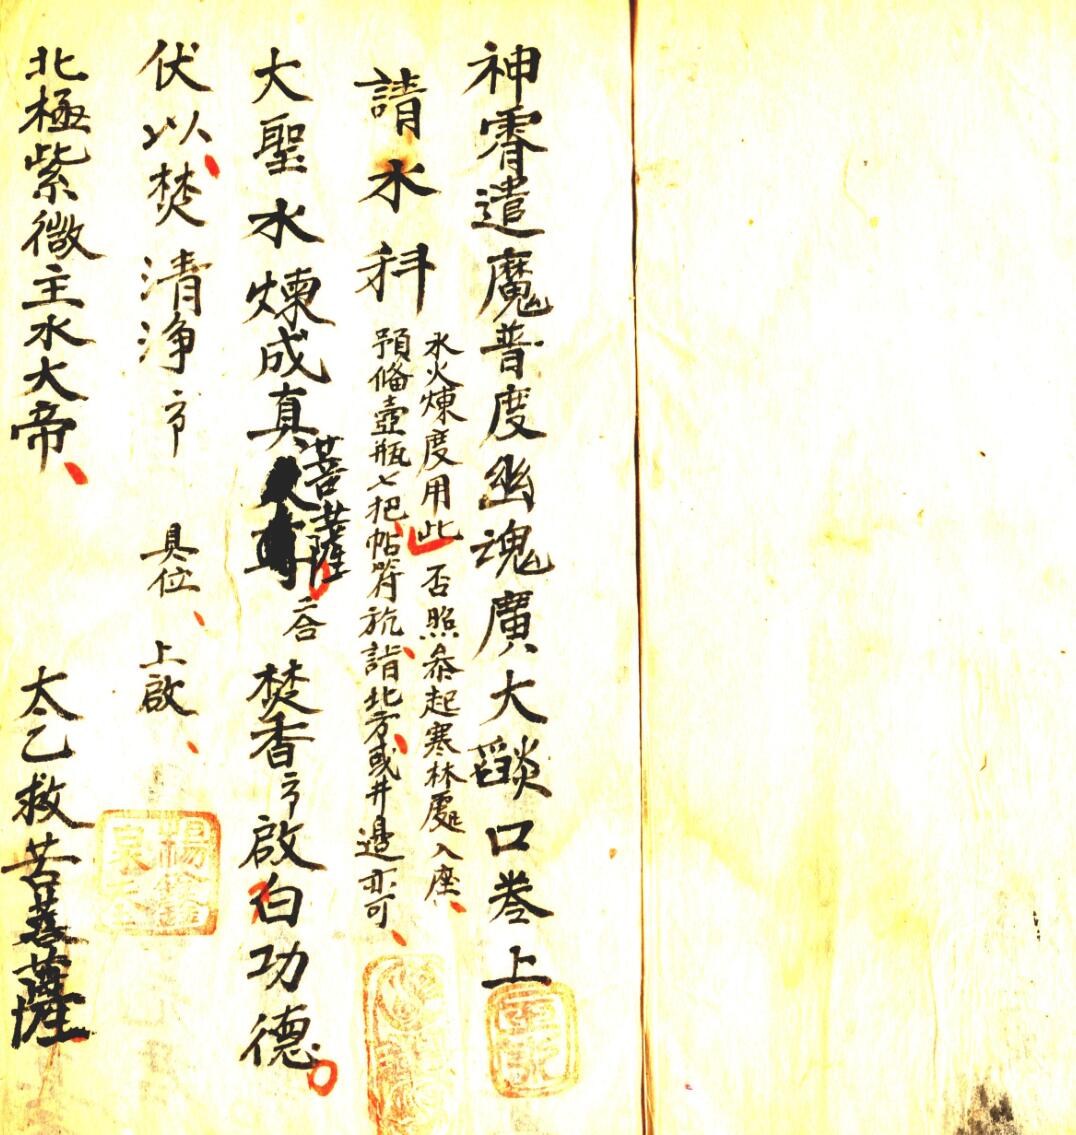 神霄遣魔普度幽魂廣大燄口卷上
請水科
水火煉度用此 否照叅起寒林處入座
預俻壺瓶七把帖符於詣北方或井邊亦可
大聖水煉成真菩薩 二合 焚香 啟白功德
伏以焚清净 具位 上啟
北極紫微主水大帝 太乙救苦菩薩